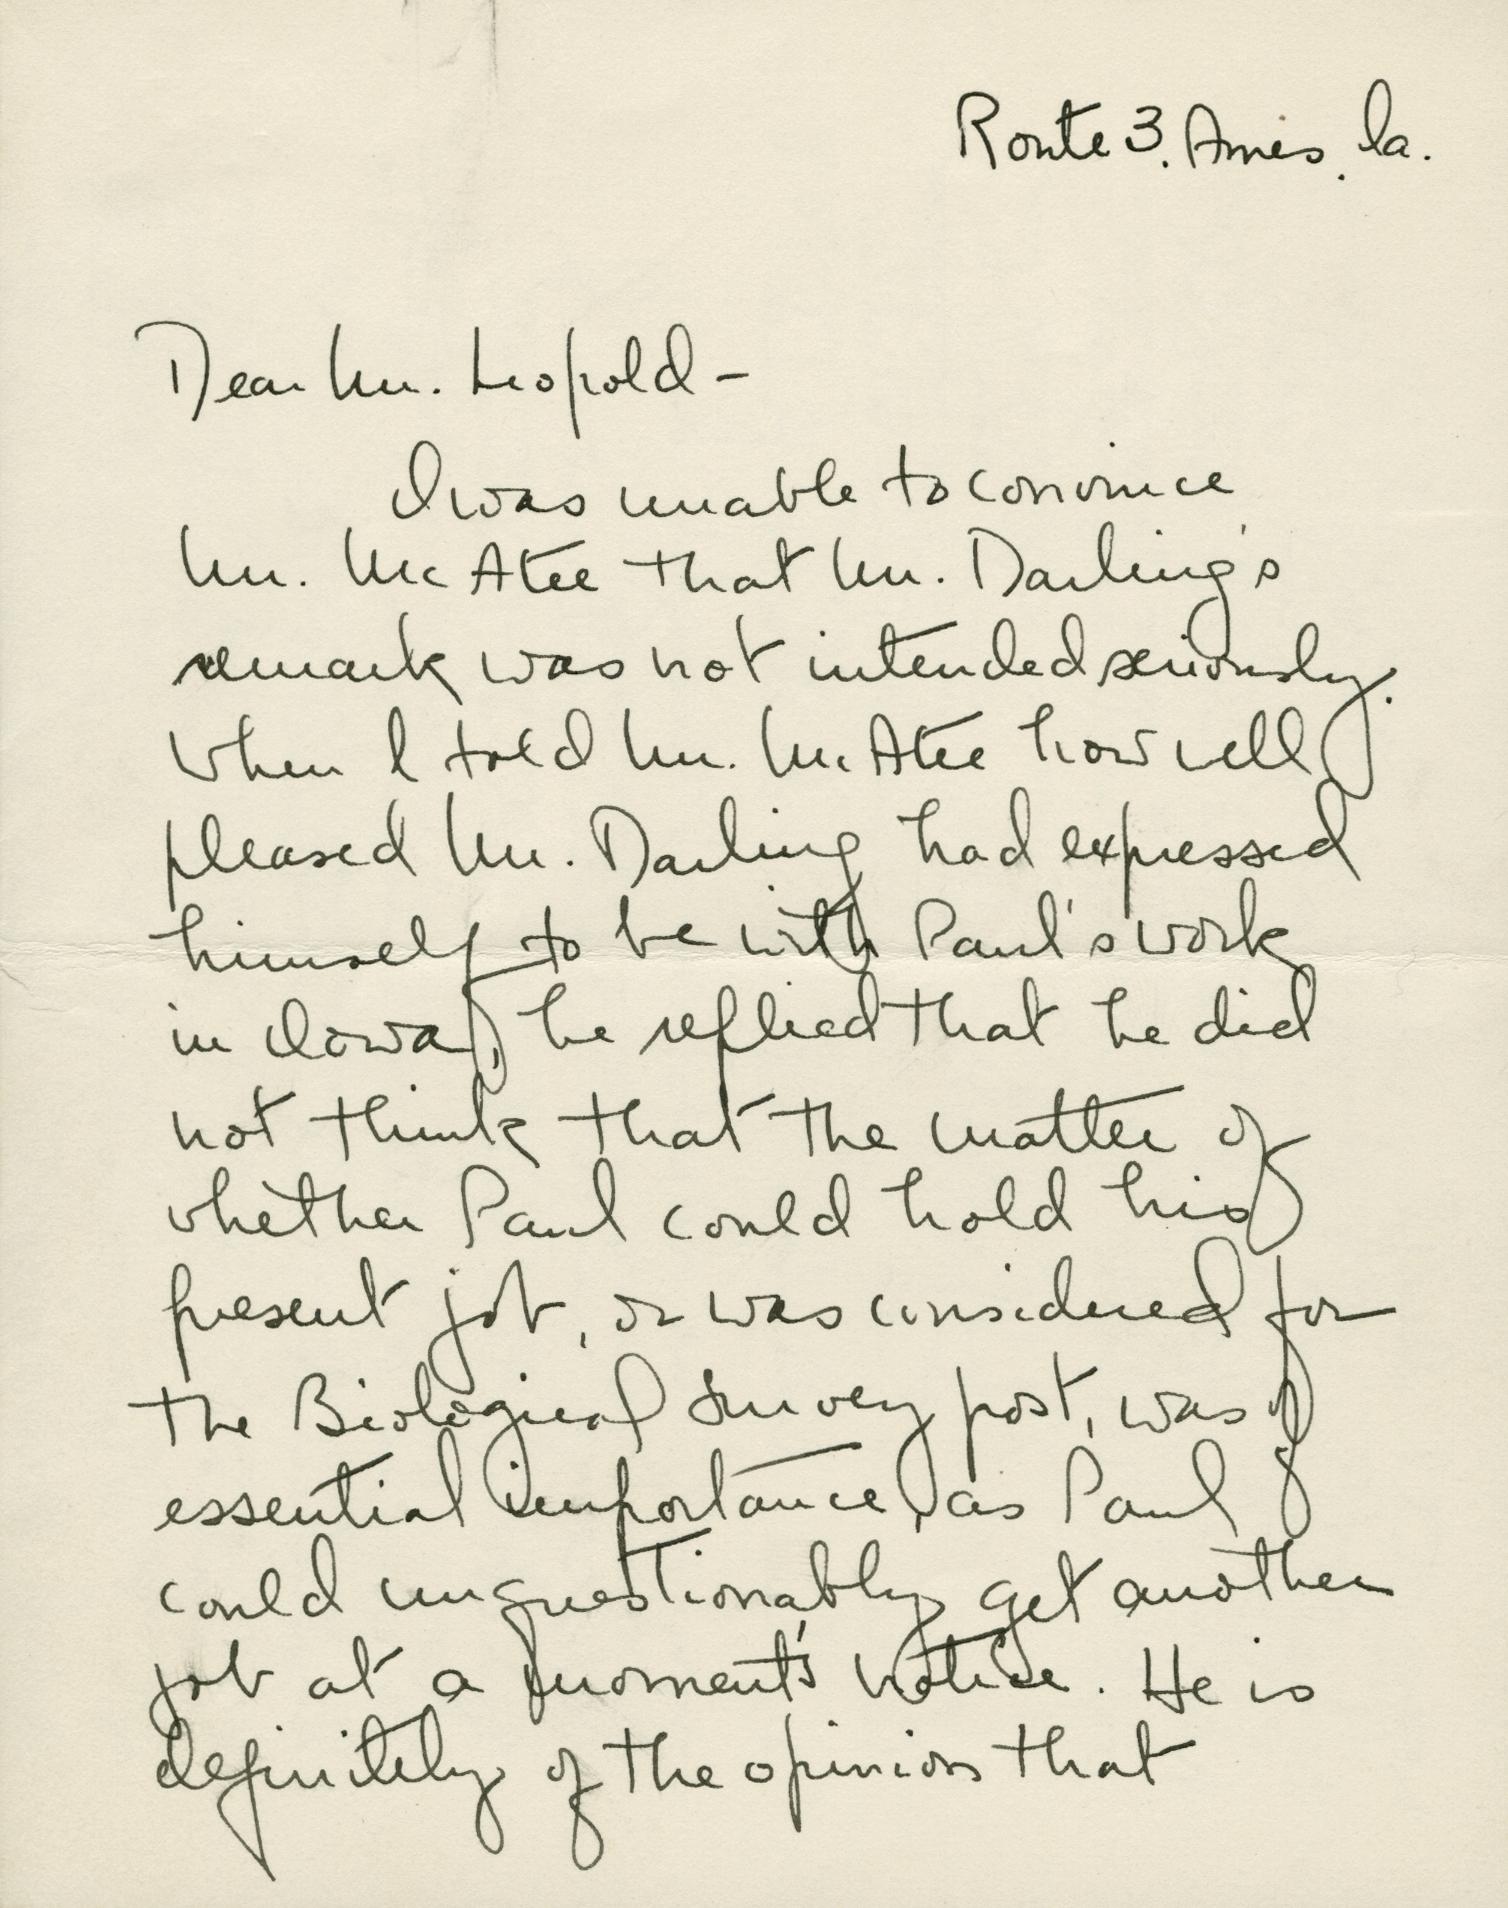 Route 3. Ames. Ia.
Dear Mr. Leopold -
I was unable to convince
Mr. McAtee that Mr. Darling's
remark was not intended seriously.
When I told Mr. McAtee how well
pleased Mr. Darling had expressed
himself to be with Paul's work
in Iowa, he replied that he did
not think that the matter of
whether Paul could hold his
present job, or was considered for
the Biological Survey post, was of
essential importance, as Paul
could unquestionably get another
job at a moment's notice. He is
definitely of the opinion that